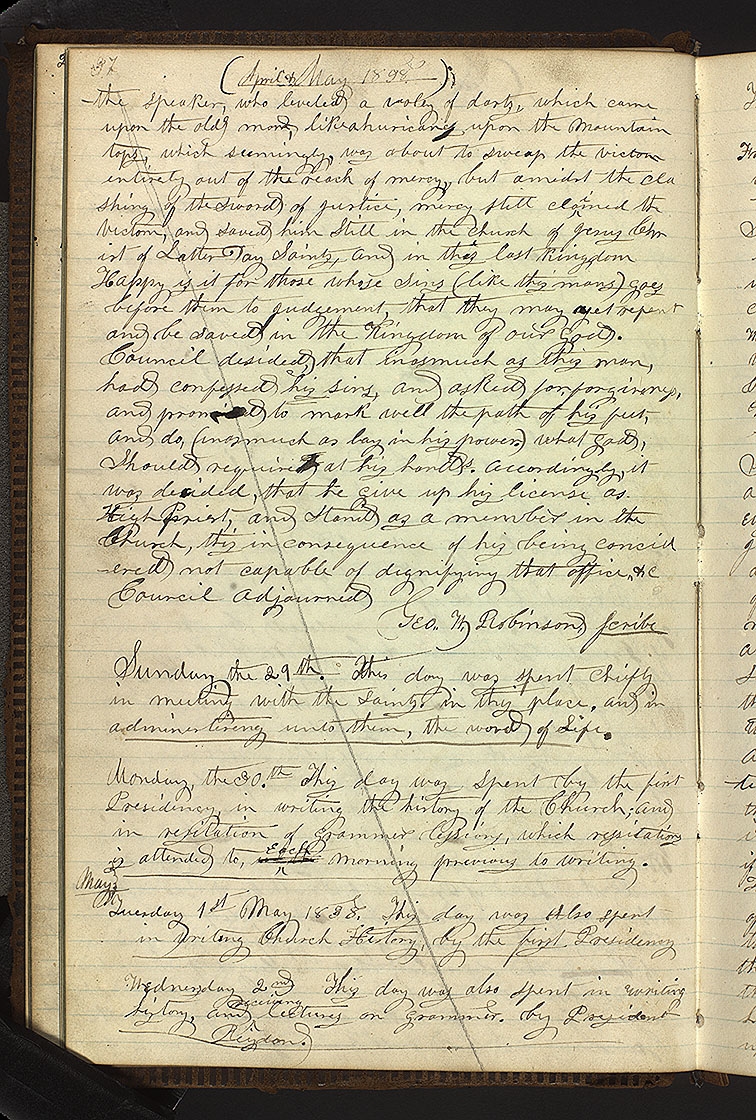 37
(April & May 1838)
the speaker, who leveled a voley of darts, which came
upon the old mans like a huricans upon the mountain
tops, which seemingly, was about to sweap the victom
entirely out of the reach of mercy, but amidst the cla
shing of the sword of justice, mercy still claimed the
victom, and saved him still in the church of Jesus Chr
ist of Latter Day Saints, and in this last kingdom
Happy is it for those whose sins (like this mans) goes
before them to judgement, that they may yet repent
and be saved in the Kingdom of our God.
Council desided, that inasmuch as this man,
had confessed his sins, and asked for forgiveness,
and promised to mark well the path of his feet,
and do, (inasmuch as lay in his power) what God,
Should require at his hands. accordingly, it
was decided, that he give up his license as
High Priest, and stand as a member in the
Church, this in consequence of his being concid
ered not capable of dignifying that office, &c
Council Adjourned
Geo. W. Robinson, Scribe
Sunday the 29th. This day was spent chiefly
in meeting with the Saints in this place, and in
administering unto them, the word of Life.
Monday, the 30.th This day was spent by the first
Presidency in writing the history of the Church; and
in resitation of grammer lessions, which ressitations
is attended to, each morning previous to writing.
May
Tuesday 1st May 1838. This day was also spent
in writing Church History, by the first Presidency
Wednesday 2nd This day was also spent in writing
history, and receiving lectures on grammer. by President
Rigdon.